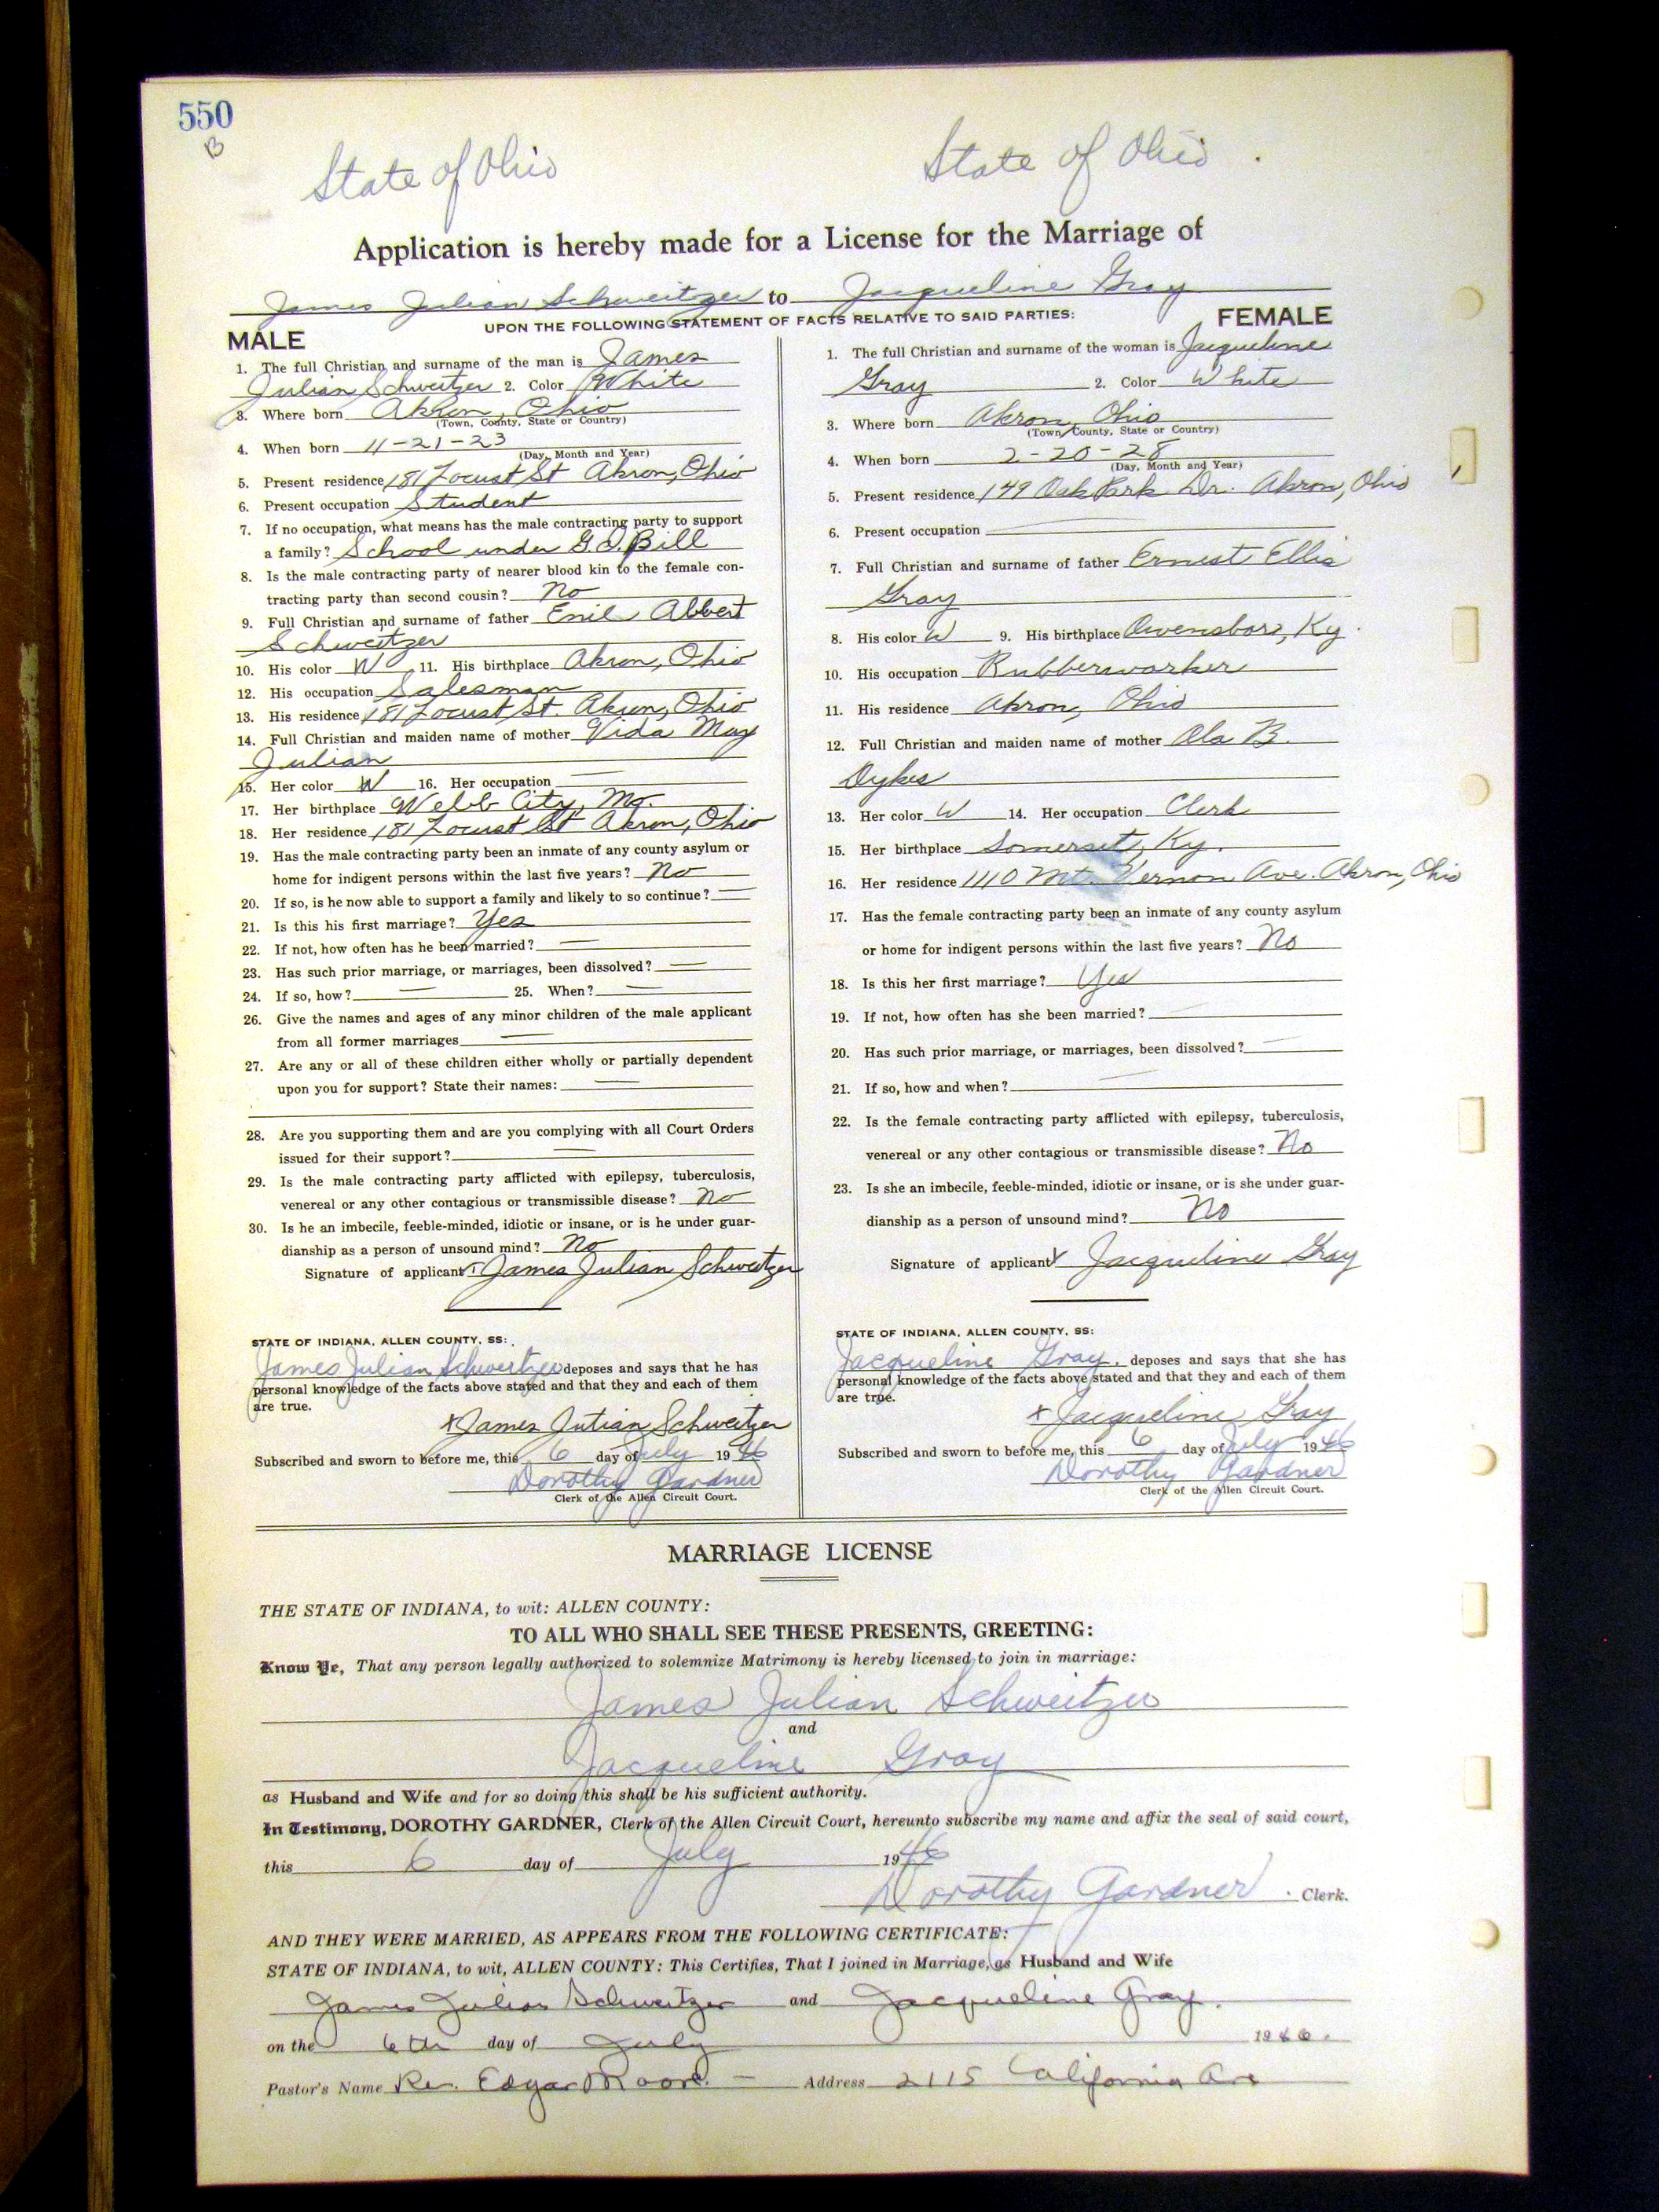 550
B
State of Ohio
State of Ohio
Application is hereby made for a License for the Marriage of
James Julian Schweitzer to Jacqueline Gray
UPON THE FOLLOWING STATEMENT OF FACTS RELATIVE TO SAID PARTIES:
MALE
1. The full Christian and surname of the man is James
Julian Schweitzer 2. Color White
3. Where born Akron, Ohio
(Town, County, State or Country)
4. When born 11-21-23
(Day, Month and Year)
5. Present residence 181 Locust St Akron, Ohio
6. Present occupation Student
7. If no occupation, what means has the male contracting party to support
a family? School under G.I. Bill
8. Is the male contracting party of nearer blood kin to the female con-
tracting party than second cousin? No
9. Full Christian and surname of father Emil Albert
Schweitzer
10. His color W 11. His birthplace Akron, Ohio
12. His occupation Salesman
13. His residence 181 Locust St. Akron, Ohio
14. Full Christian and maiden name of mother Vida May
Julian
15. Her color W 16. Her occupation —
17. Her birthplace Webb City, Mo.
18. Her residence 181 Locust St Akron, Ohio
19. Has the male contracting party been an inmate of any county asylum or
home for indigent persons within the last five years? No
20. If so, is he now able to support a family and likely to so continue? —
21. Is this his first marriage? Yes
22. If not, how often has he been married? —
23. Has such prior marriage, or marriages, been dissolved? —
24. If so, how? — 25. When? —
26. Give the names and ages of any minor children of the male applicant
from all former marriages —
27. Are any or all of these children either wholly or partially dependent
upon you for support? State their names: —
28. Are you supporting them and are you complying with all Court Orders
issued for their support? —
29. Is the male contracting party afflicted with epilepsy, tuberculosis,
venereal or any other contagious or transmissible disease? No
30. Is he an imbecile, feeble-minded, idiotic or insane, or is he under guar-
dianship as a person of unsound mind? No
Signature of applicant James Julian Schweitzer
STATE OF INDIANA, ALLEN COUNTY, SS:
James Julian Schweitzer deposes and says that he has
personal knowledge of the facts above stated and that they and each of them
are true.
x James Julian Schweitzer
Subscribed and sworn to before me, this 6 day of July 1946
Dorothy Gardner
Clerk of the Allen Circuit Court.
FEMALE
1. The full Christian and surname of the woman is Jacqueline
Gray 2. Color White
3. Where born Akron, Ohio
(Town, County, State or Country)
4. When born 2-20-28
(Day, Month and Year)
5. Present residence 149 Oak Park Dr. Akron, Ohio
6. Present occupation —
7. Full Christian and surname of father Ernest Ellis
Gray
8. His color W 9. His birthplace Owensboro, Ky.
10. His occupation Rubberworker
11. His residence Akron, Ohio
12. Full Christian and maiden name of mother Ola B.
Dykes
13. Her color W 14. Her occupation Clerk
15. Her birthplace Somerset, Ky.
16. Her residence 1110 Mt. Vernon Ave. Akron, Ohio
17. Has the female contracting party been an inmate of any county asylum
or home for indigent persons within the last five years? No
18. Is this her first marriage? Yes
19. If not, how often has she been married? —
20. Has such prior marriage, or marriages, been dissolved? —
21. If so, how and when? —
22. Is the female contracting party afflicted with epilepsy, tuberculosis,
venereal or any other contagious or transmissible disease? No
23. Is she an imbecile, feeble-minded, idiotic or insane, or is she under guar-
dianship as a person of unsound mind? No
Signature of applicant Jacqueline Gray
STATE OF INDIANA, ALLEN COUNTY, SS:
Jacqueline Gray, deposes and says that she has
personal knowledge of the facts above stated and that they and each of them
are true.
x Jacqueline Gray
Subscribed and sworn to before me, this 6 day of July 1946
Dorothy Gardner
Clerk of the Allen Circuit Court.
MARRIAGE LICENSE
THE STATE OF INDIANA, to wit: ALLEN COUNTY:
TO ALL WHO SHALL SEE THESE PRESENTS, GREETING:
Know Ye, That any person legally authorized to solemnize Matrimony is hereby licensed to join in marriage:
James Julian Schweitzer
and
Jacqueline Gray
as Husband and Wife and for so doing this shall be his sufficient authority.
In Testimony, DOROTHY GARDNER, Clerk of the Allen Circuit Court, hereunto subscribe my name and affix the seal of said court,
this 6 day of July 1946
Dorothy Gardner. Clerk.
AND THEY WERE MARRIED, AS APPEARS FROM THE FOLLOWING CERTIFICATE:
STATE OF INDIANA, to wit, ALLEN COUNTY: This Certifies, That I joined in Marriage, as Husband and Wife
James Julian Schweitzer and Jacqueline Gray.
on the 6th day of July 1946.
Pastor's Name Rev. Edgar Moore. — Address 2115 California Ave